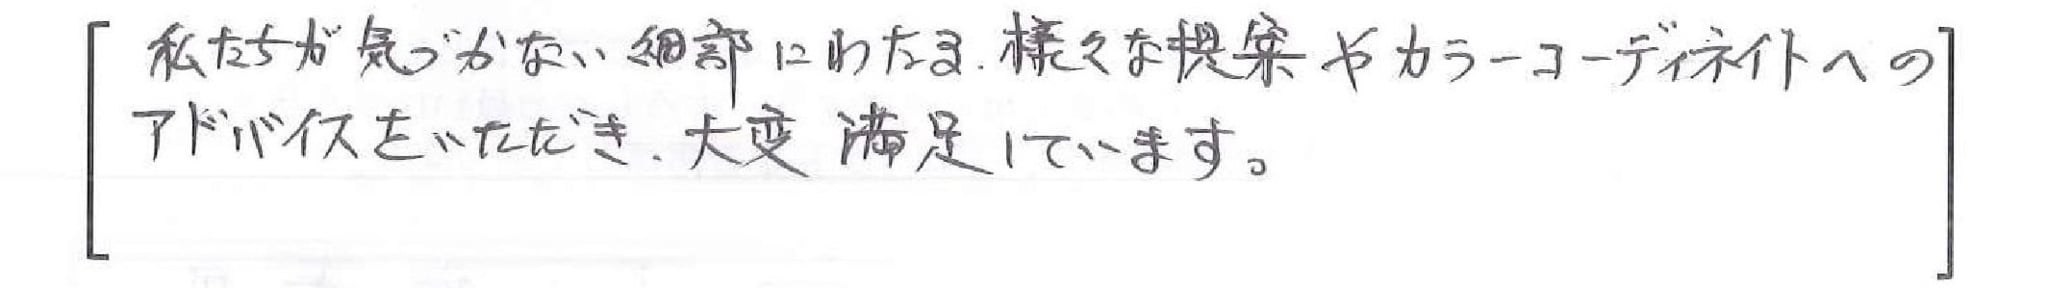 私たちが気づかない細部にわたる、様々な提案やカラーコーディネイトへの
アドバイスをいただき、大変満足しています。